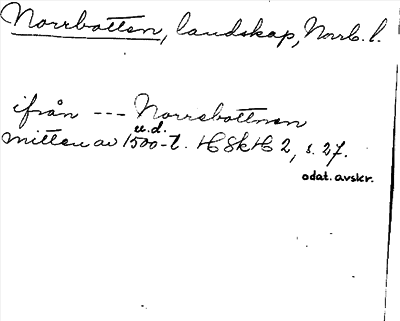 Norrbotten, landskap, Norrb. l.
ifrån --- Norrebottnen
u.d.
mitten av 1500-t. HSkH 2, s. 27.
odat. avskr.